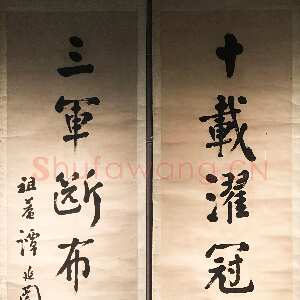 十載濯冠
三軍斷布
祖菴譚延闓
Shufawang.CN